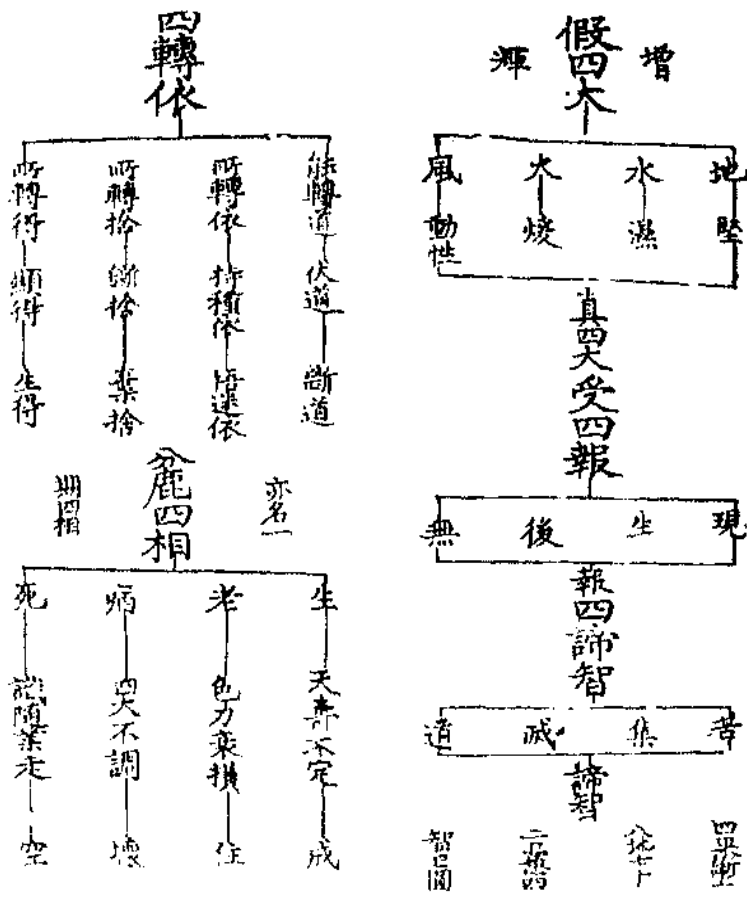 假四大
增
輝
地 堅
水 濕
火 煖
風 動性
真四大受四報
現
生
後
無
報四諦智
苦
集
滅
道
諦智
智已圓
四轉依
能轉道 伏道 斷道
所轉依 持種依 悟迷依
所轉捨 斷捨 棄捨
所轉得 顯得 生得
麁四相
亦名一
期四相
生 天壽不定 成
老 色力衰損 住
病 四大不調 壞
死 識隨業走 空